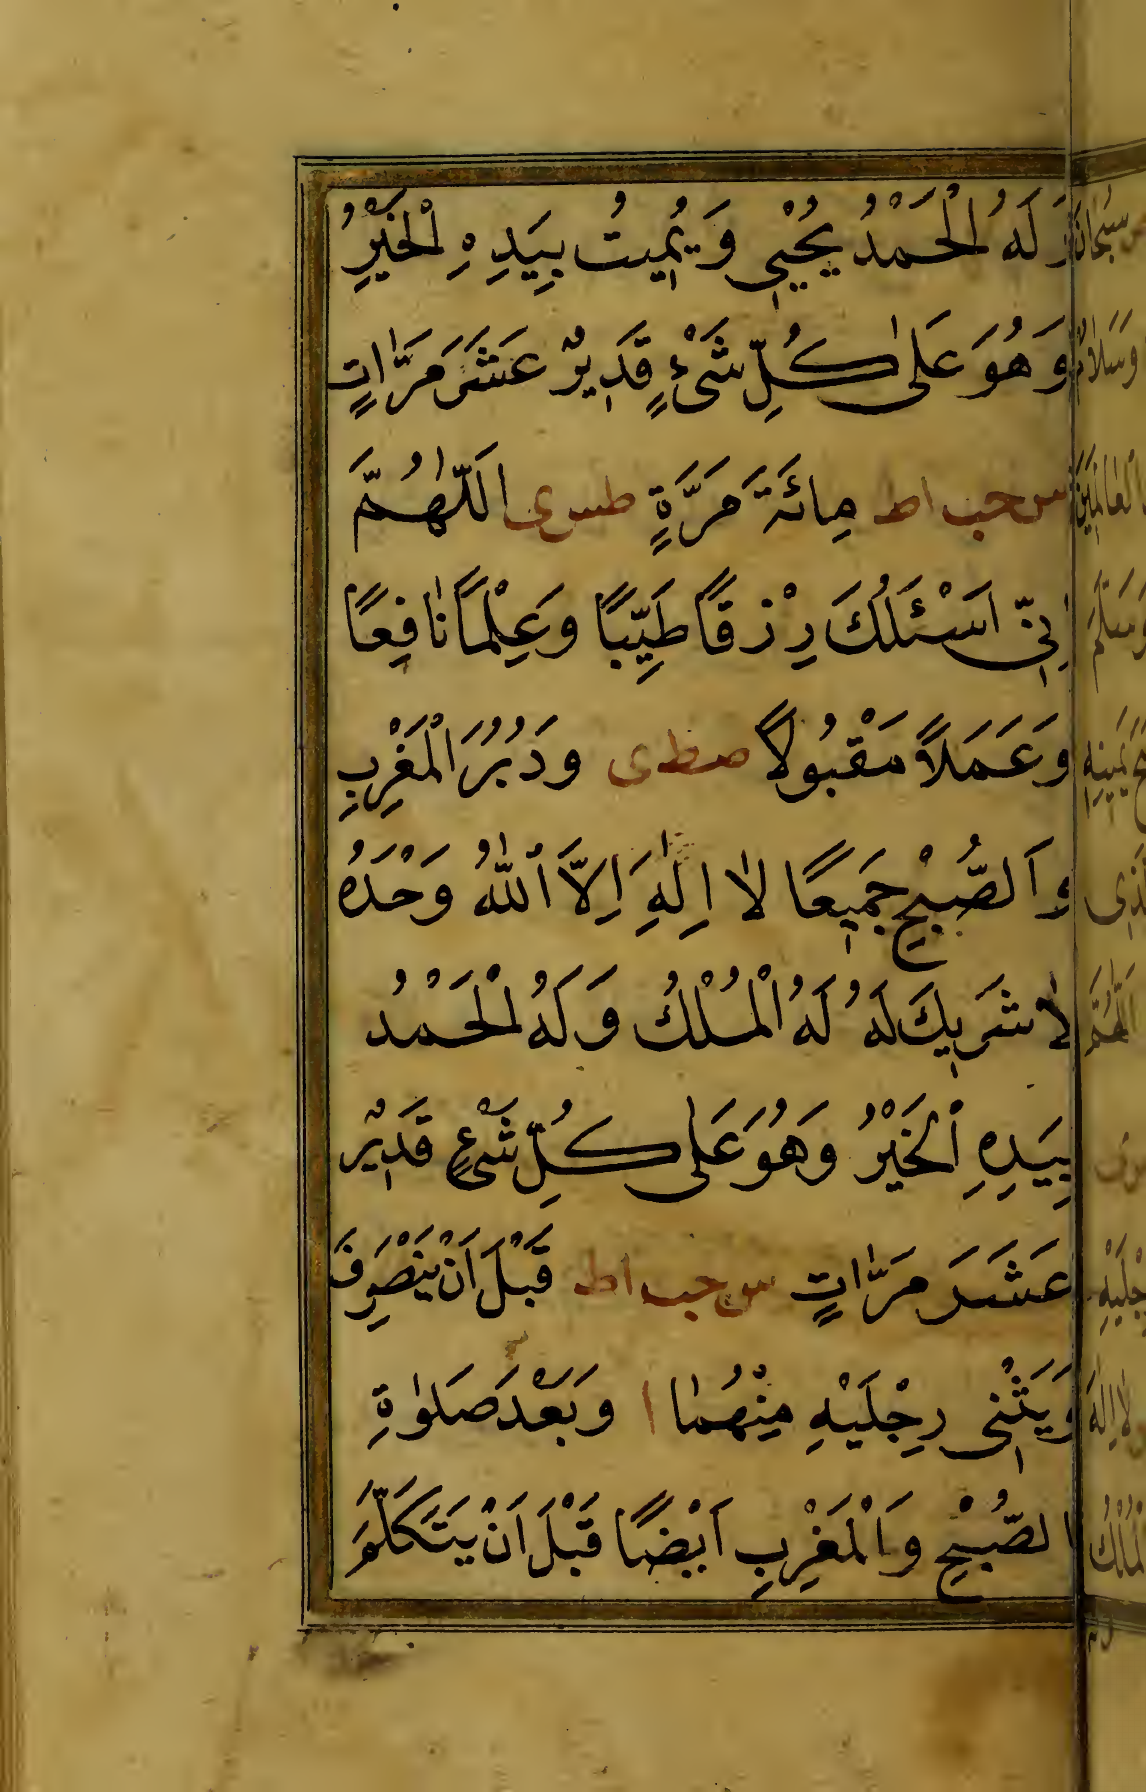 وَلَهُ الْحَمْدُ يُحْيِي وَيُمِيتُ بِيَدِهِ الْخَيْرُ
وَهُوَ عَلٰى كُلِّ شَيْءٍ قَدِيرٌ عَشَرَ مَرَّاتٍ
س حب اط مِائَةَ مَرَّةٍ طس ى اَللّٰهُمَّ
اِنِّى اَسْئَلُكَ رِزْقًا طَيِّبًا وَعِلْمًا نَافِعًا
وَعَمَلًا مَقْبُولًا صط ى وَدُبُرَ الْمَغْرِبِ
وَالصُّبْحِ جَمِيعًا لَا اِلٰهَ اِلَّا اللّٰهُ وَحْدَهُ
لَا شَرِيكَ لَهُ لَهُ الْمُلْكُ وَلَهُ الْحَمْدُ
بِيَدِهِ الْخَيْرُ وَهُوَ عَلٰى كُلِّ شَيْءٍ قَدِيرٌ
عَشَرَ مَرَّاتٍ س حب اط قَبْلَ اَنْ يَنْصَرِفَ
وَيَثْنِى رِجْلَيْهِ مِنْهُمَا ا وَبَعْدَ صَلٰوةِ
الصُّبْحِ وَالْمَغْرِبِ اَيْضًا قَبْلَ اَنْ يَتَكَلَّمَ